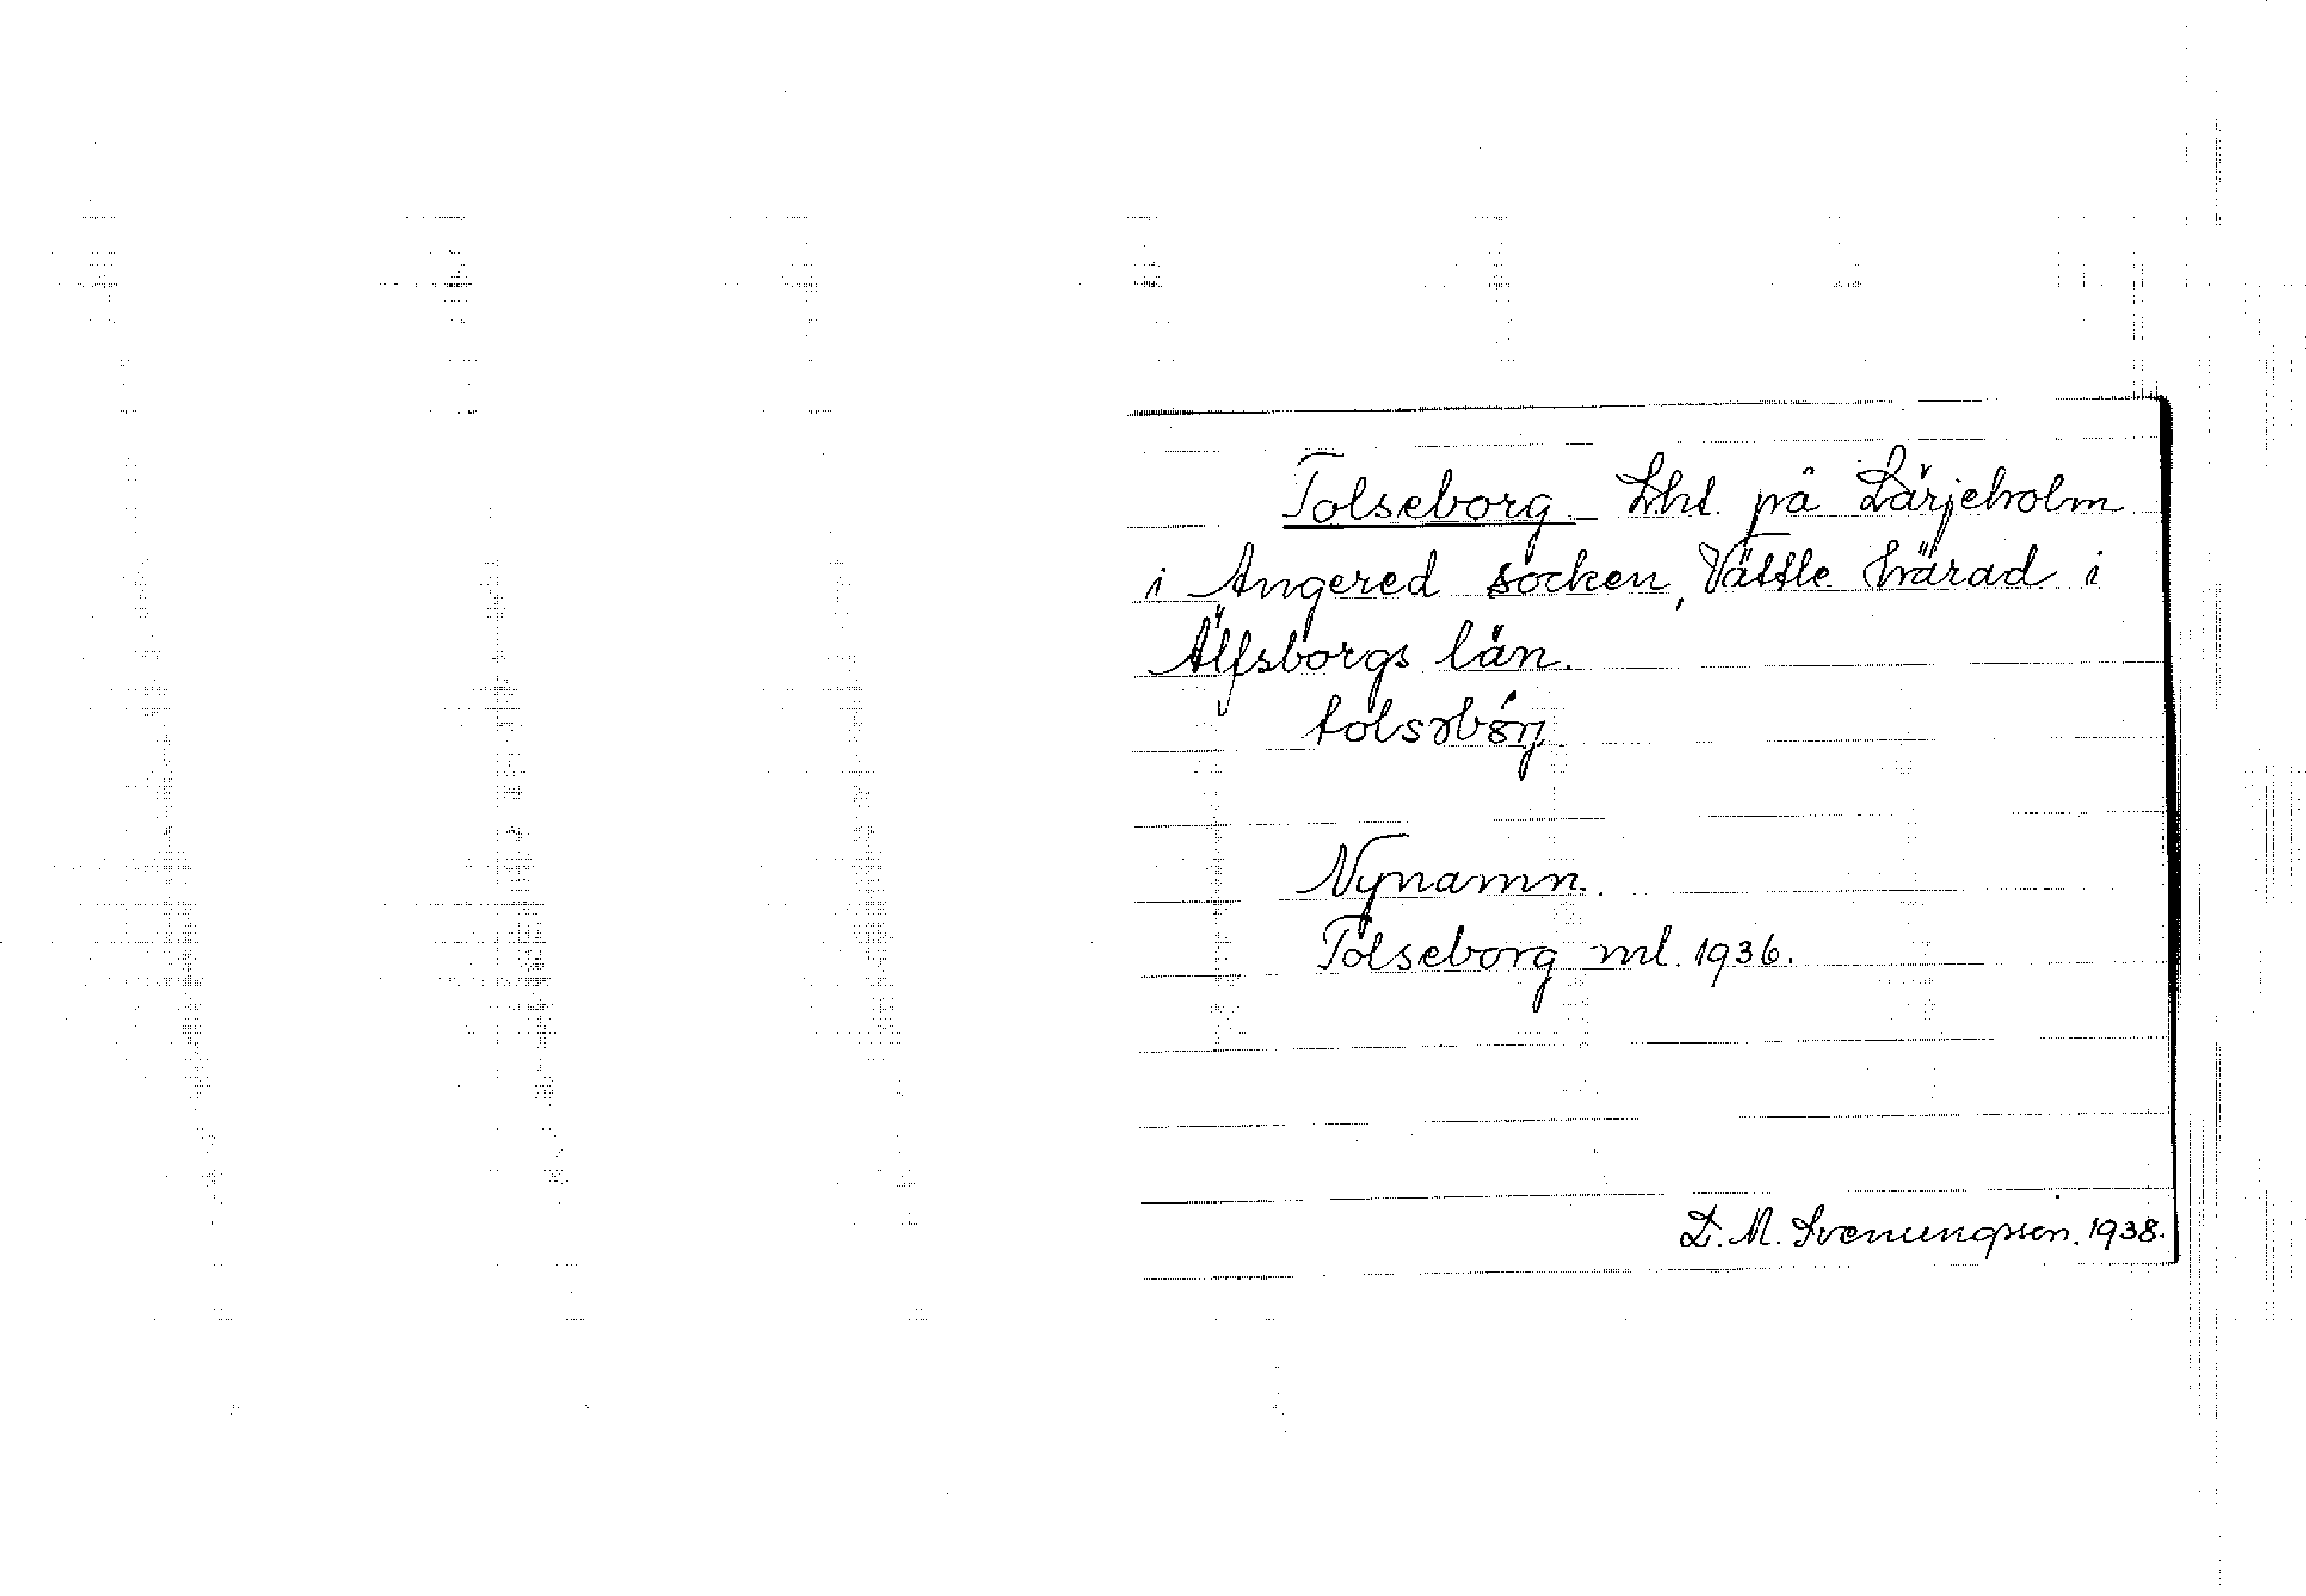 Tolseborg. Lht. på Lärjeholm
i Angered socken, Vättle härad i
Älfsborgs län.
Nynamn.
Tolseborg ml. 1936.
L. M. Svenungsson. 1938.